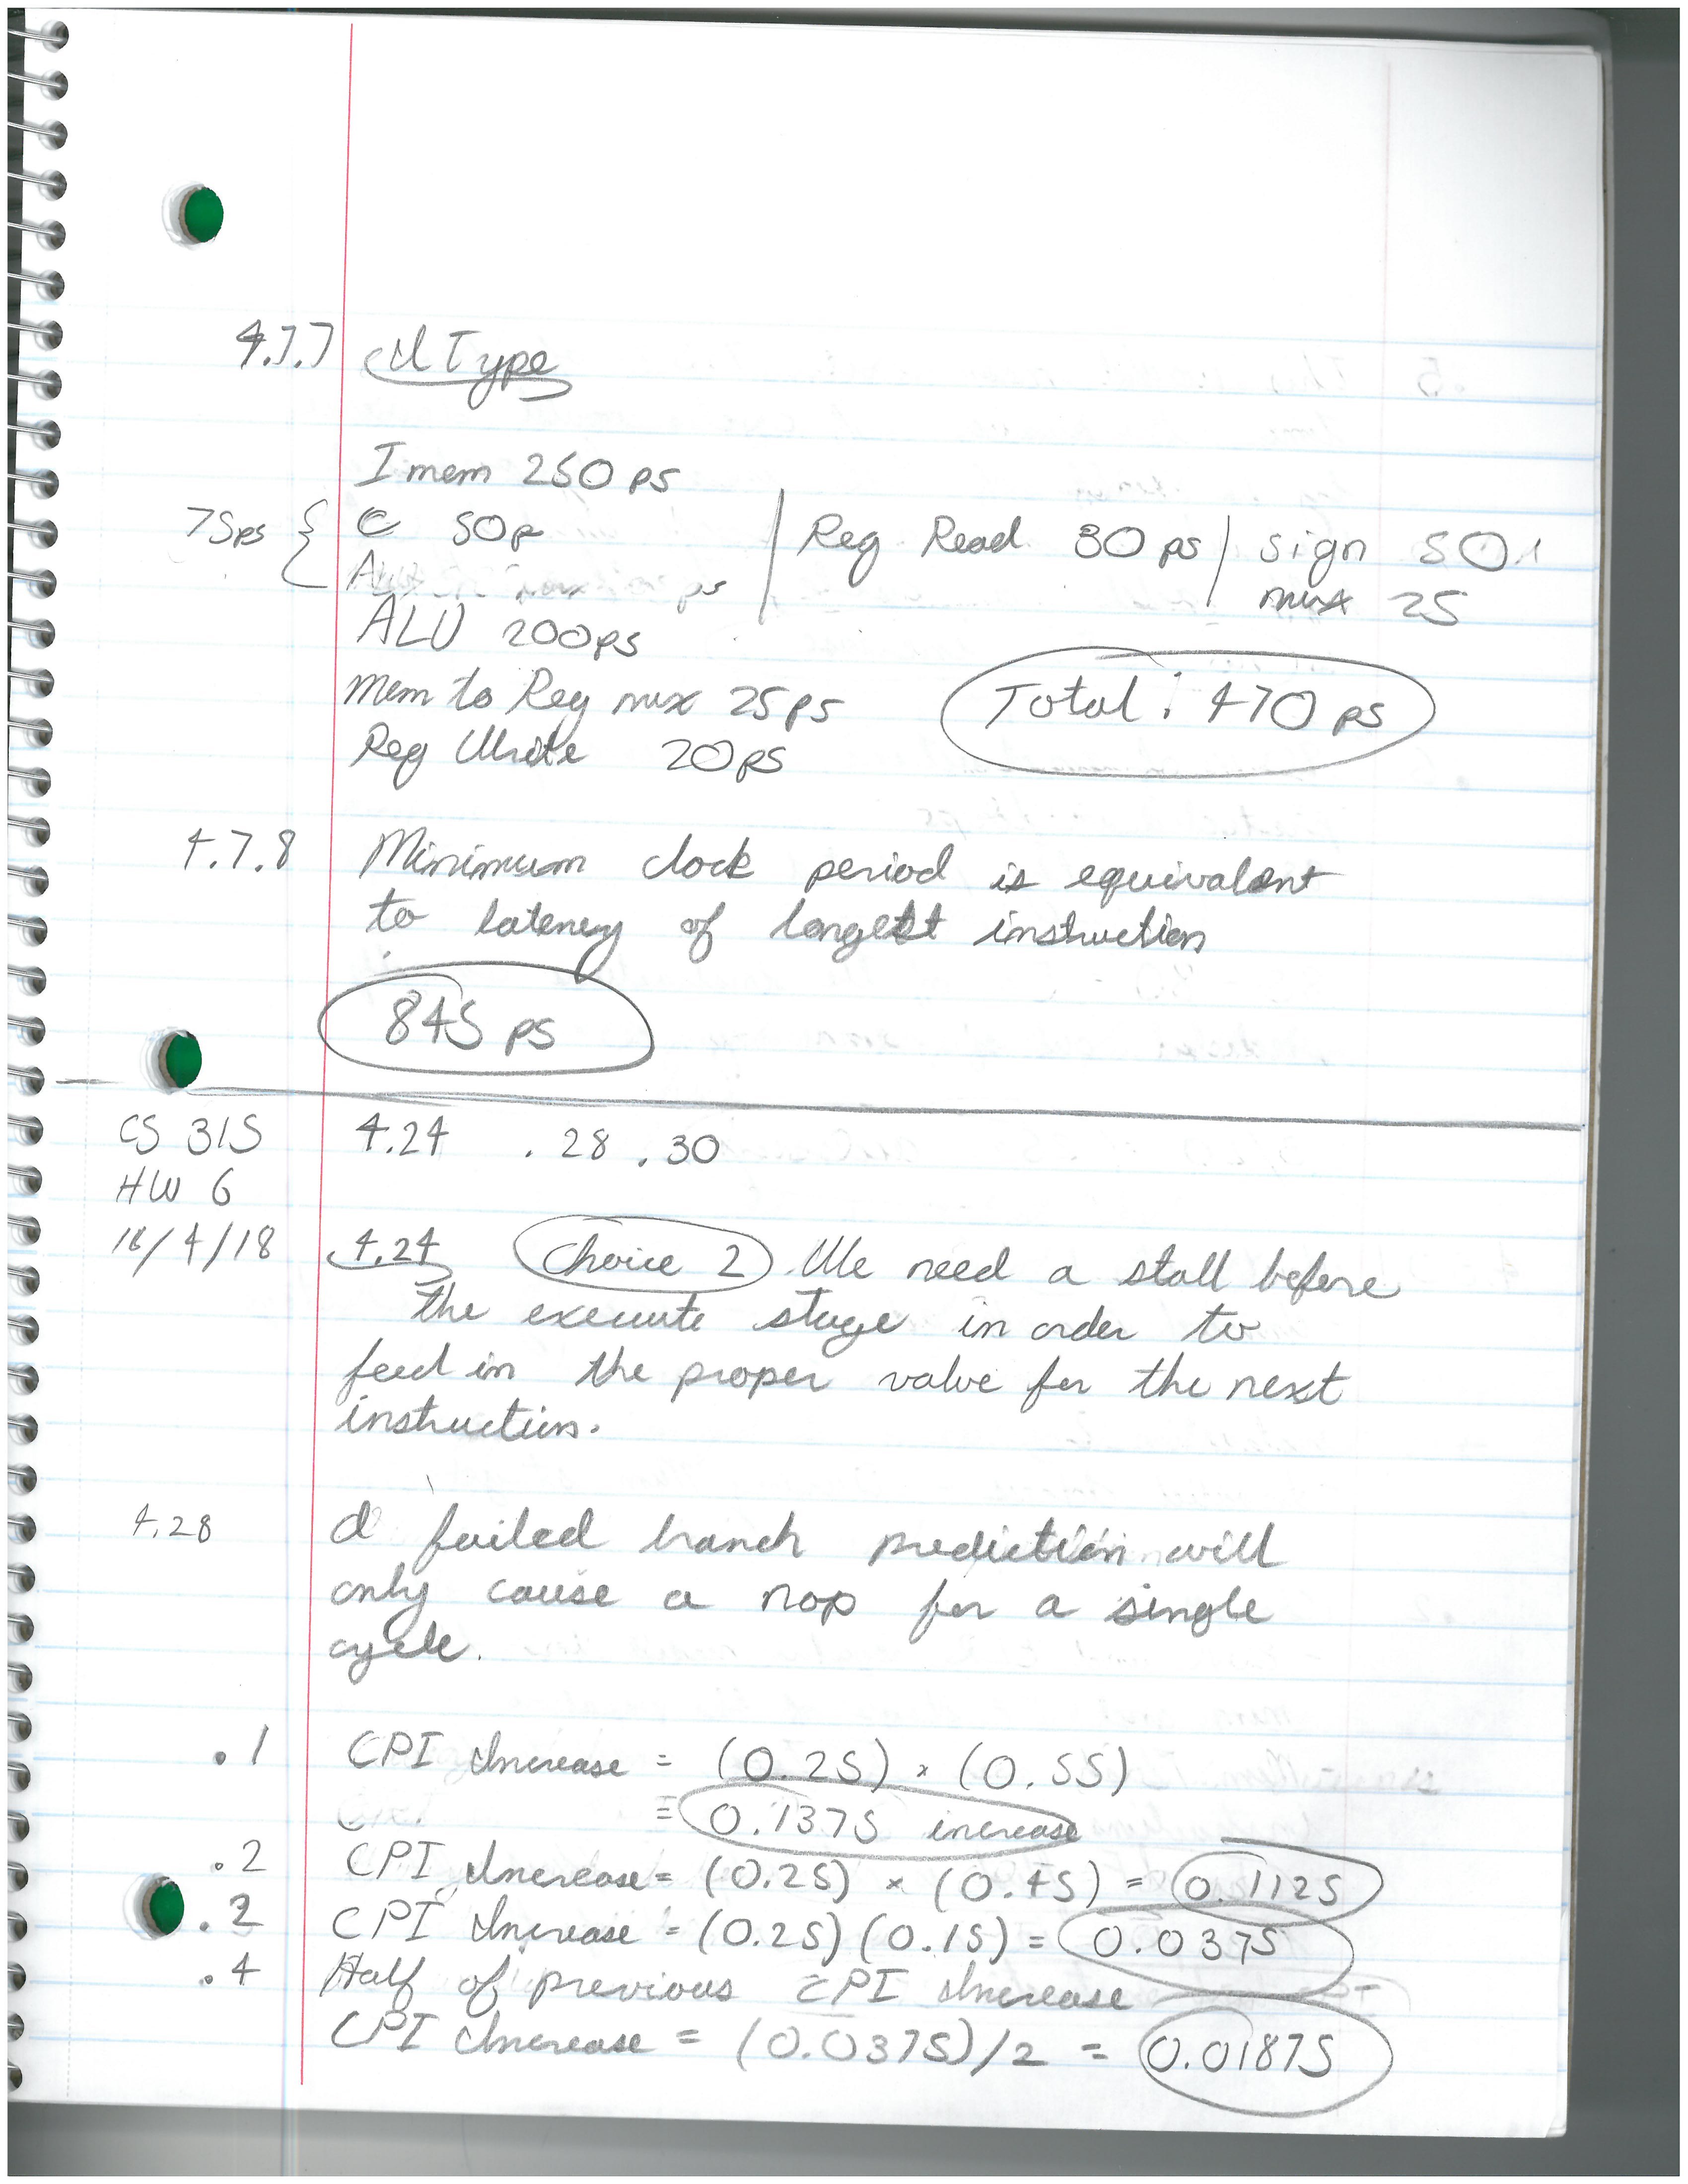 4.7.7 I Type
I mem 250 ps
75ps { C 50p | Reg Read 30 ps | sign 50
mux 25
ALU 200ps
Mem to Reg mux 25ps
Total: 470 ps
Reg Write 20ps
4.7.8 Minimum clock period is equivalent
to latency of longest instruction
845 ps
CS 315 4.24 .28 .30
HW 6
4.24 Choice 2. We need a stall before
the execute stage in order to
feed in the proper value for the next
instruction.
4.28 A failed branch prediction will
only cause a nop for a single
cycle.
.1 CPI Increase = (0.25) × (0.55)
= 0.1375 increase
.2 CPI Increase = (0.25) × (0.45) = 0.1125
.2 CPI Increase = (0.25)(0.15) = 0.0375
.4 Half of previous CPI Increase
CPI Increase = (0.0375)/2 = 0.01875